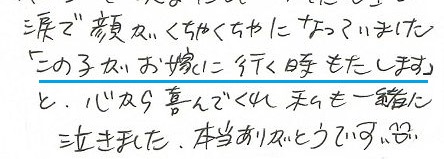 涙で顔がくちゃくちゃになっていました
「この子がお嫁に行く時もたします」
と、心から喜んでくれ私も一緒に
泣きました、本当ありがとうです。